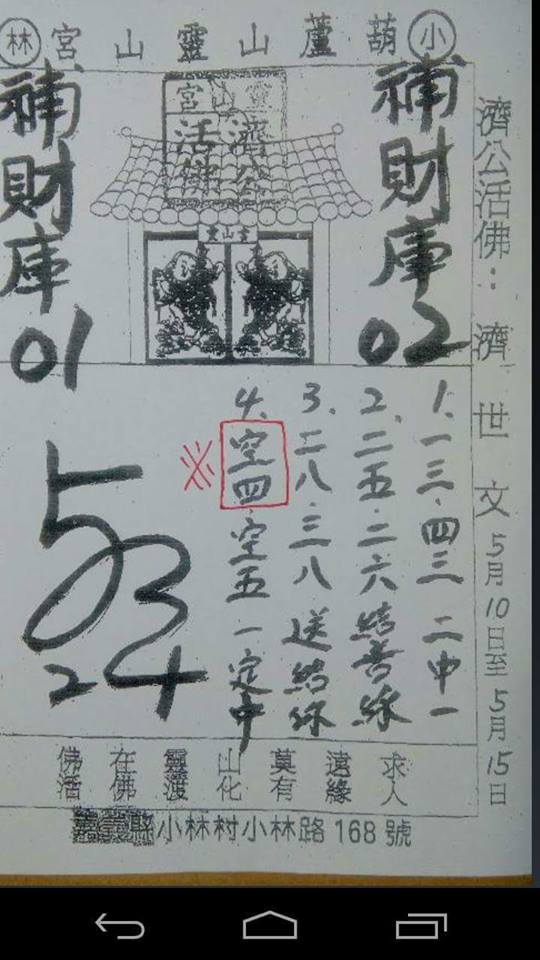 小葫蘆山靈山宮林
濟公活佛：濟世文 5月10日至5月15日
補財庫02
靈山宮
濟公
活佛
補財庫01
1、一三.四三 二中一
2、二五.二六結善緣
3、二八.三八 送結緣
4、空四.空五 一定中
※
53
24
求遠莫山靈在佛
人緣有化渡佛活
縣小林村小林路168號